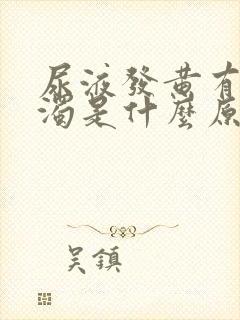 尿液發黄有
濁是什麼原
吳鎮